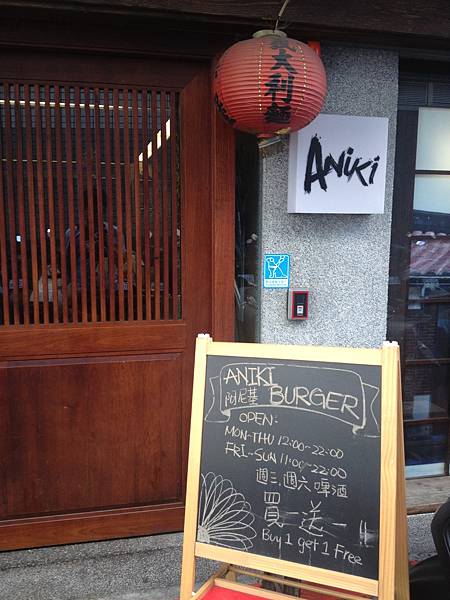 義大利麵
ANiKi
ANIKI
阿尼基 BURGER
OPEN:
MON-THU 12:00~22:00
FRI~SUN 11:00~22:00
週三,週六 啤酒
買一送一!!
Buy 1 get 1 Free